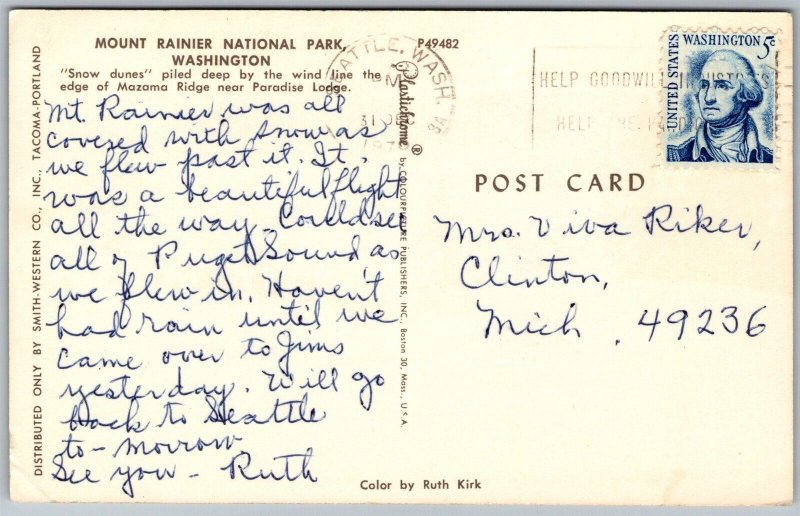 MOUNT RAINIER NATIONAL PARK,
WASHINGTON
"Snow dunes" piled deep by the wind line the
edge of Mazama Ridge near Paradise Lodge.
P49482
Mt. Rainier was all
covered with snow as
we flew past it. It
was a beautiful flight
all the way. Could see
all of Puget Sound as
we flew in. Haven't
had rain until we
came over to Jims
yesterday. Will go
back to Seattle
to-morrow.
See you - Ruth
DISTRIBUTED ONLY BY SMITH-WESTERN CO., INC., TACOMA-PORTLAND
Plastichrome ® by COLOURPICTURE PUBLISHERS, INC. Boston 30, Mass., U.S.A.
SEATTLE, WASH.
PM
31 DEC
HELP GOODWILL INDUSTRIES
HELP THE
UNITED STATES
WASHINGTON 5c
POST CARD
Mrs. Viva Riker,
Clinton,
Mich. 49236
Color by Ruth Kirk